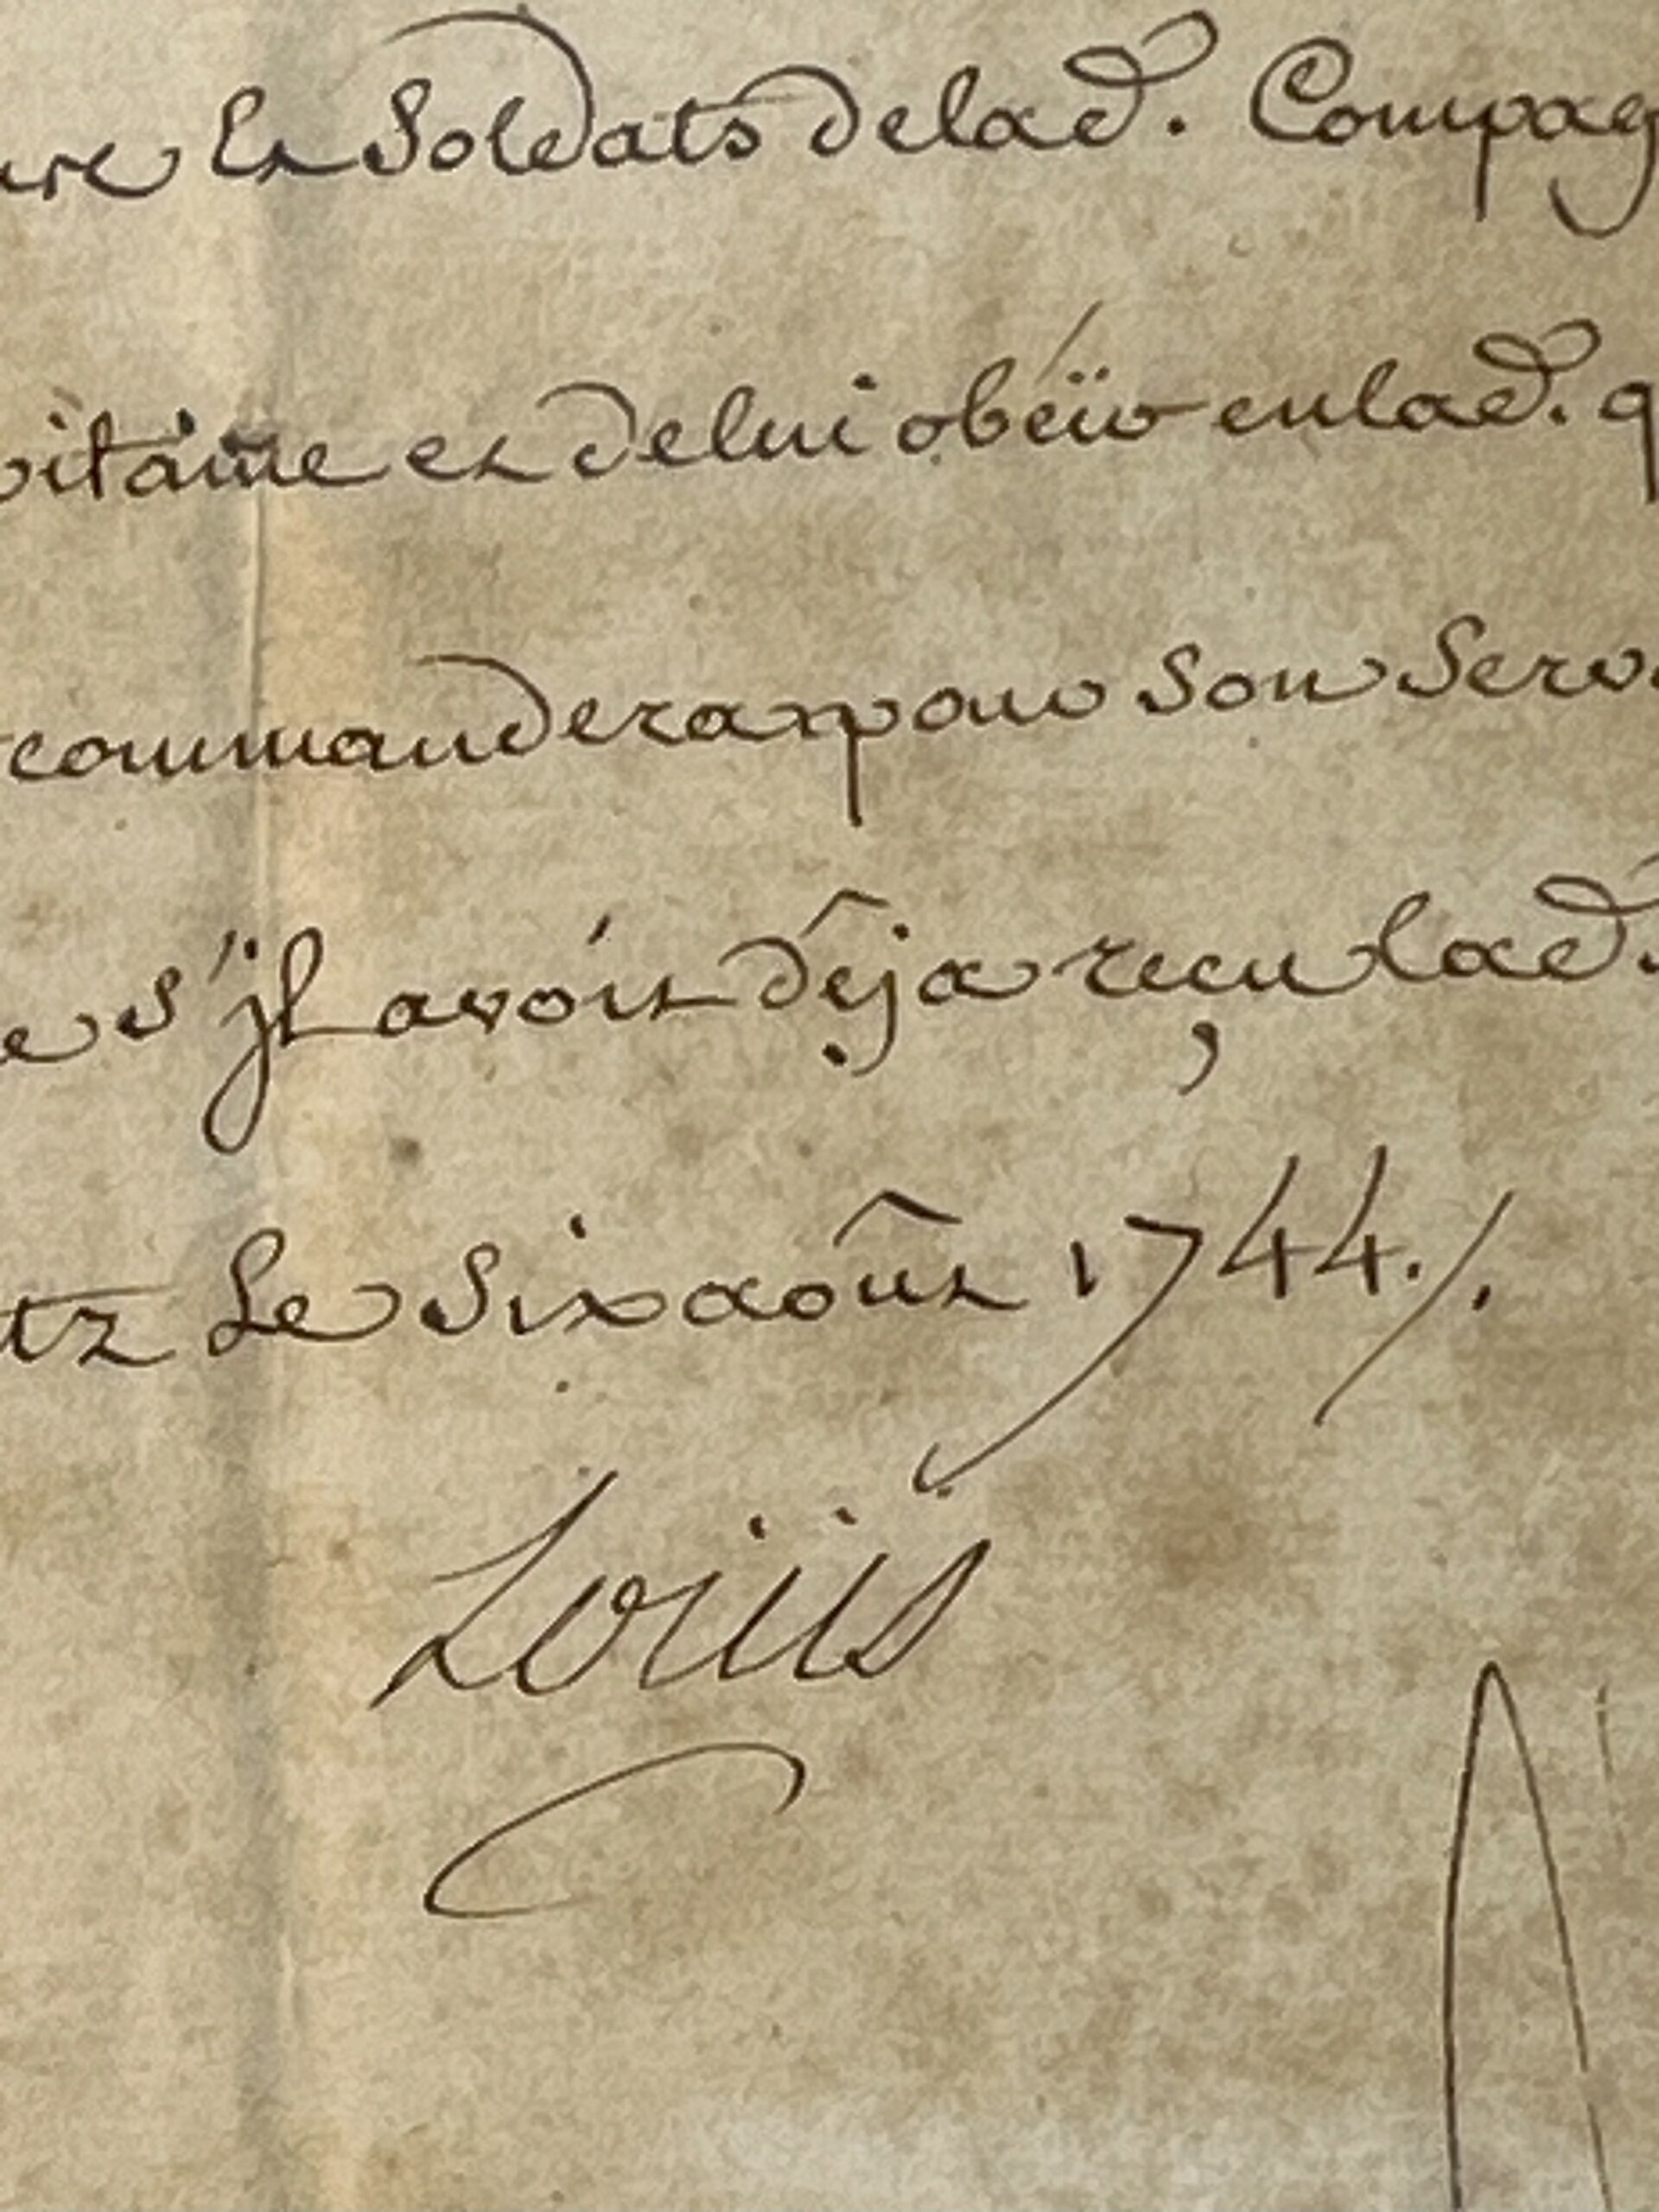 Les Soldats de lad. Compag
pitaine et de lui obéïr en lad. q
commandera pour son Serv
s'jl avoit dêja reçu lad.
tz Le Six août 1744./.
Loüis